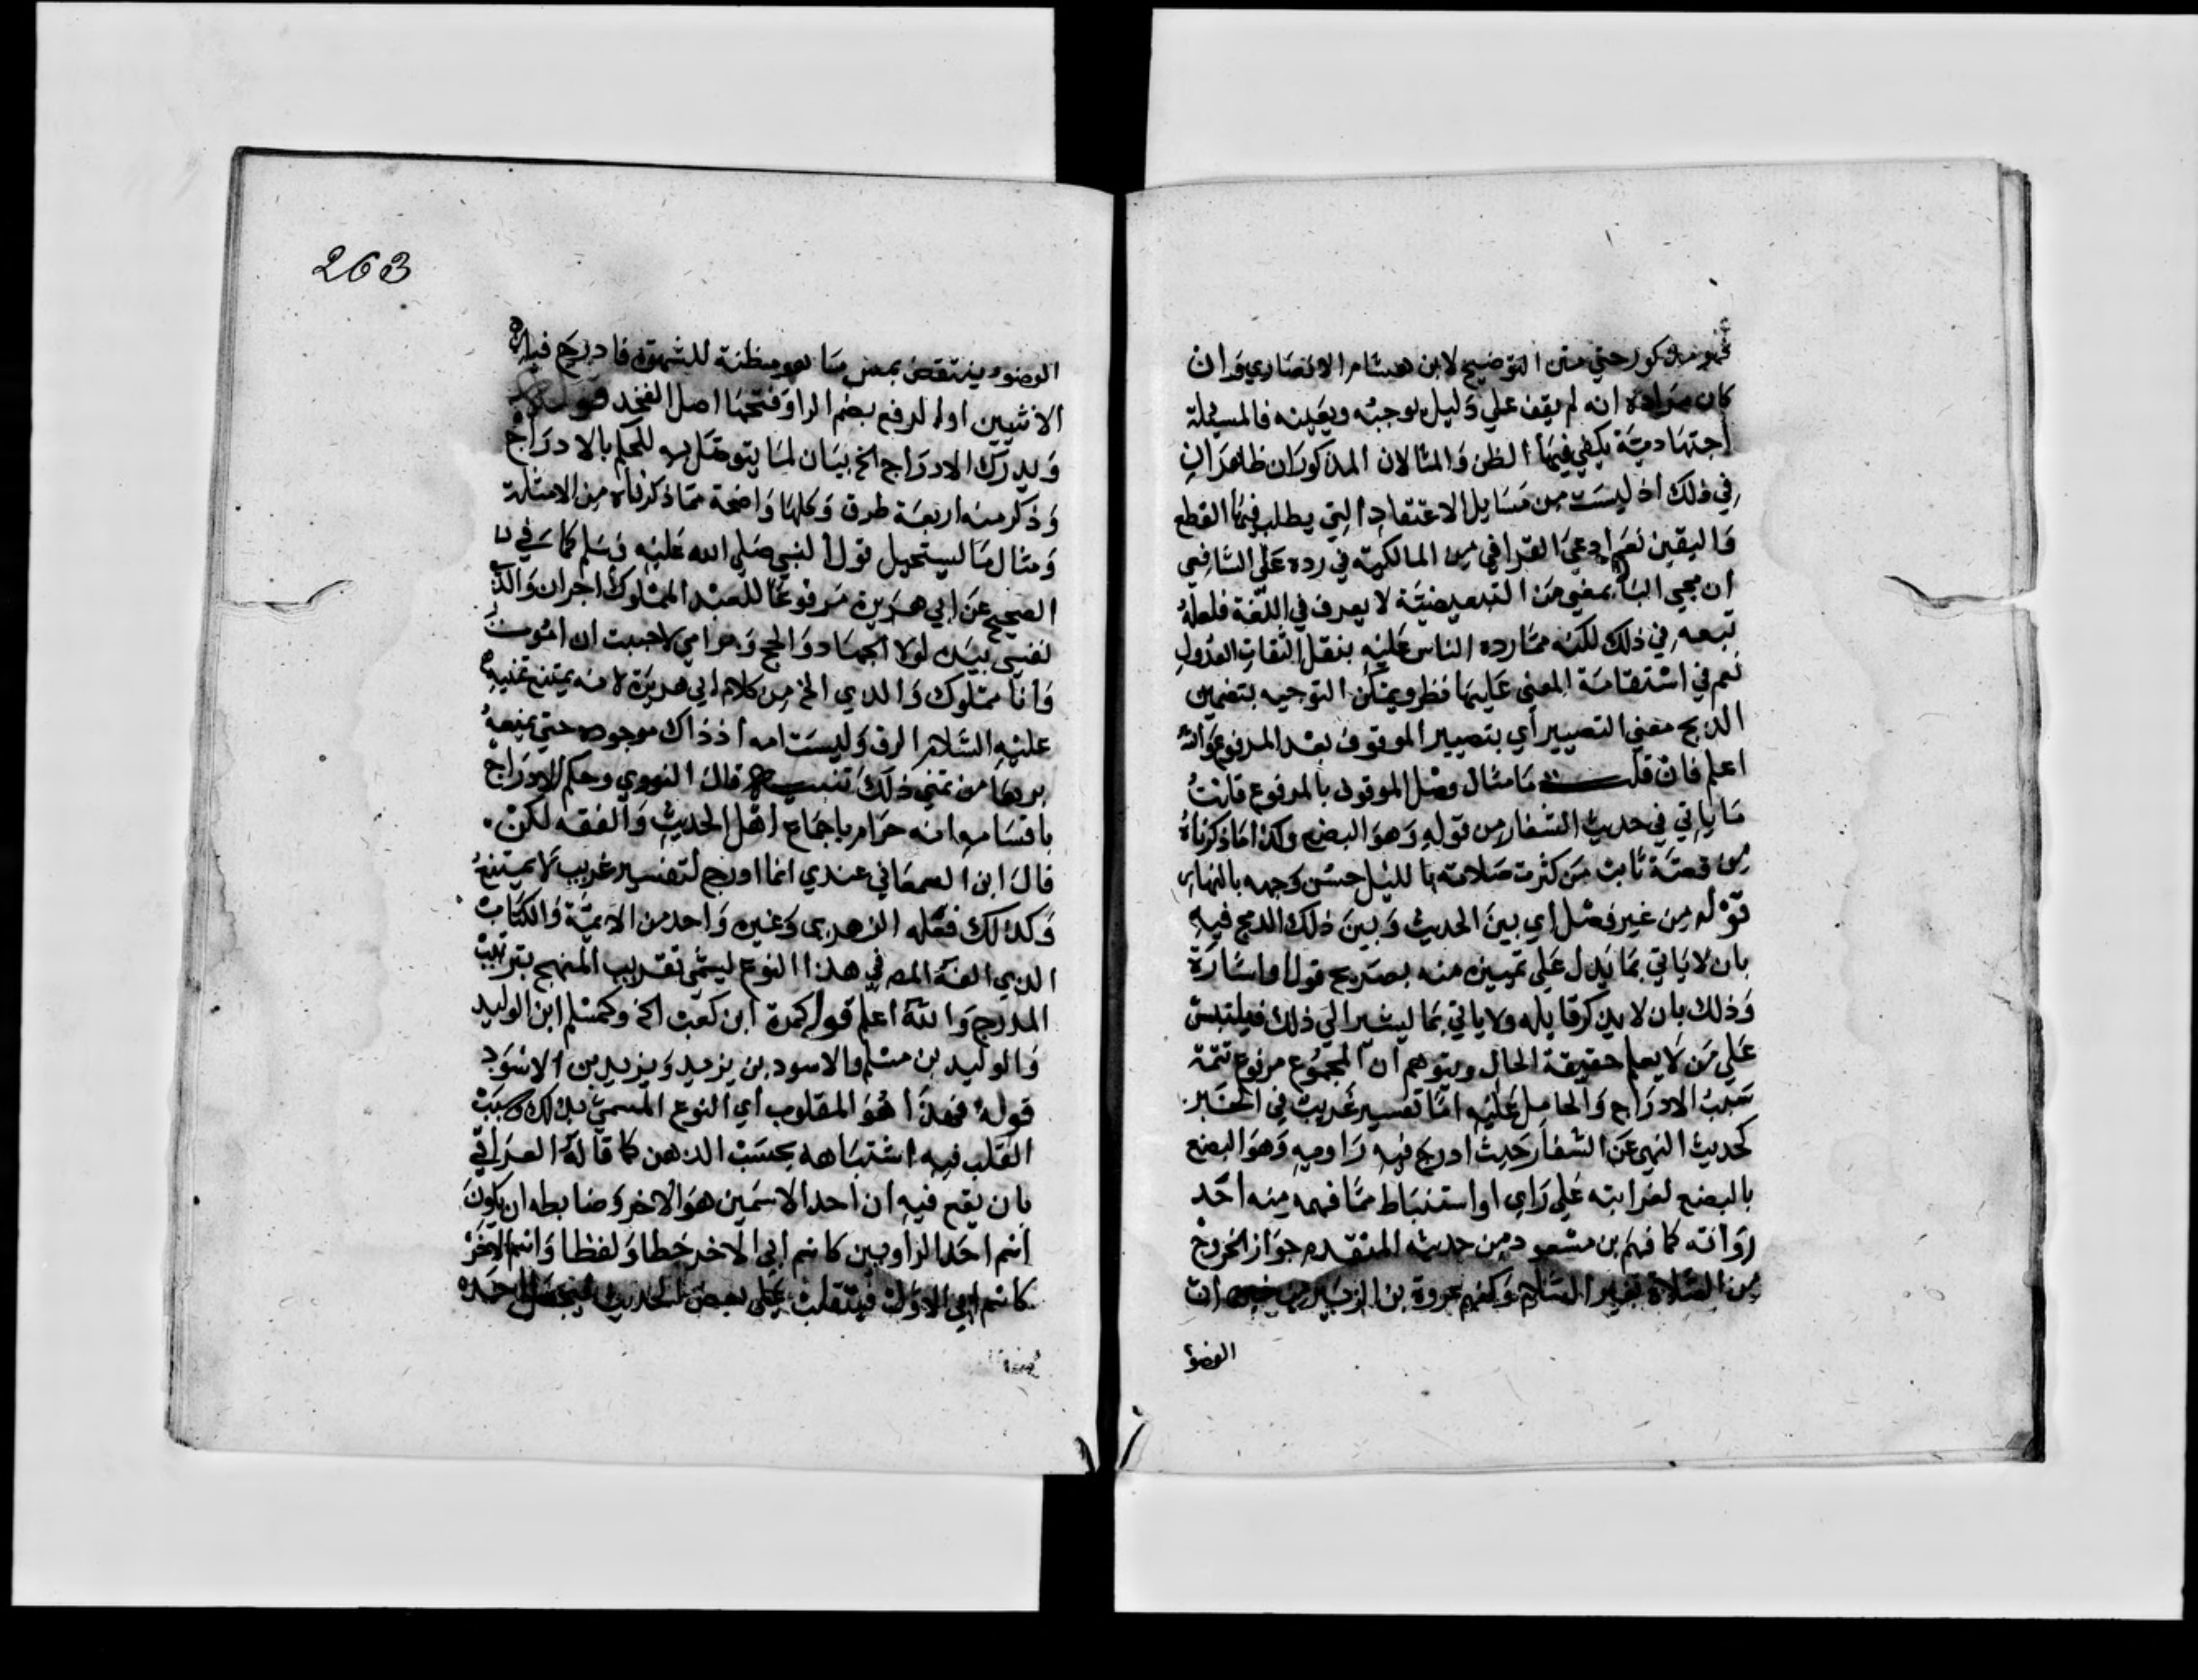 فهو مذكور حتي متن التوضيح لابن هشام الانصاري وان
كان مراده انه لم يقف علي دليل يوجبه ويعينه فالمسئلة
اجتهادية يكفي فيها الظن والمثالان المذكوران ظاهران
في ذلك اذ ليست من مسايل الاعتقاد التي يطلب فيها القطع
واليقين نعم ادعي القرافي من المالكية في رده علي الشافعي
ان مجي البا بمعني من التبعيضية لا يعرف في اللغة فلعله
تبعه في ذلك لكنه مما رده الناس عليه بنقل الثقات العدول
نعم في استقامة المعني عليها نظر ويمكن التوجيه بتضمين
الدمج معني التصيير اي بتصيير الموقوف بعد المرفوع والله
اعلم فان قلت ما مثال وصل الموقوف بالمرفوع قلت
ما ياتي في حديث الشغار من قوله وهو البضع وكذا ما ذكرناه
من قصة ثابت من كثرت صلاته بالليل حسن وجهه بالنهار
قوله من غير فصل اي بين الحديث وبين ذلك الدمج فيه
بان لا ياتي بما يدل علي تمييزه منه بصريح قول او اشارة
وذلك بان لا يذكر قايله ولا ياتي بما يشير الي ذلك فيلتبس
علي من لا يعلم حقيقة الحال ويتوهم ان المجموع مرفوع تتمة
سبب الادراج والحامل عليه اما تفسير غريب في الخبر
كحديث النهي عن الشغار حيث ادرج فيه راويه وهو البضع
بالبضع لغرابته علي راي او استنباط مما فهمه منه احد
رواته كما فهم بن مسعود من حديثه المتقدم جواز الخروج
من الصلاة بغير السلام وكفهم عروة بن الزبير من ان
الوضوء
263
الوضوء ينتقض بمس ما هو مظنة للشهوة فادرج فيه
الانثيين او الرفع بضم الرا وفتحها اصل الفخذ قوله
ويدرك الادراج الخ بيان لما يتوصل به للحكم بالادراج
وذكر منه اربعة طرق وكلها واضحة مما ذكرناه من الامثلة
ومثال ما يستحيل قول النبي صلي الله عليه وسلم كما في
الصحيح عن ابي هريرة مرفوعا للعبد المملوك اجران والذي
نفسي بيده لولا الجهاد والحج وبر امي لاحببت ان اموت
وانا مملوك والذي الخ من كلام ابي هريرة لانه يمتنع تمنيه
عليه السلام الرق وليست امه اذ ذاك موجوده حتي يمنعه
برها من تمني ذلك تنبيه قال النووي وحكم الادراج
باقسامه انه حرام باجماع اهل الحديث والفقه لكن
قال ابن السمعاني عندي انما ادرج لتفسير غريب لا يمتنع
وكذلك فعله الزهري وغيره واحد من الايمة والكتاب
الذي الفه المص في هذا النوع يسمي تقريب المنهج بترتيب
المدرج والله اعلم قوله كمرة ابن كعب الخ وكمسلم ابن الوليد
والوليد بن مسلم والاسود بن يزيد ويزيد بن الاسود
قوله فهذا هو المقلوب اي النوع المسمي بذلك وسبب
القلب فيه اشتباهه بحسب الذهن كما قاله العراقي
بان يقع فيه ان احد الاسمين هو الاخر وضابطه ان يكون
اسم احد الراويين كاسم ابي الاخر خطا ولفظا واسم الاخر
كاسم ابي الاول فينقلب علي بعض الحديث فيجعل احده